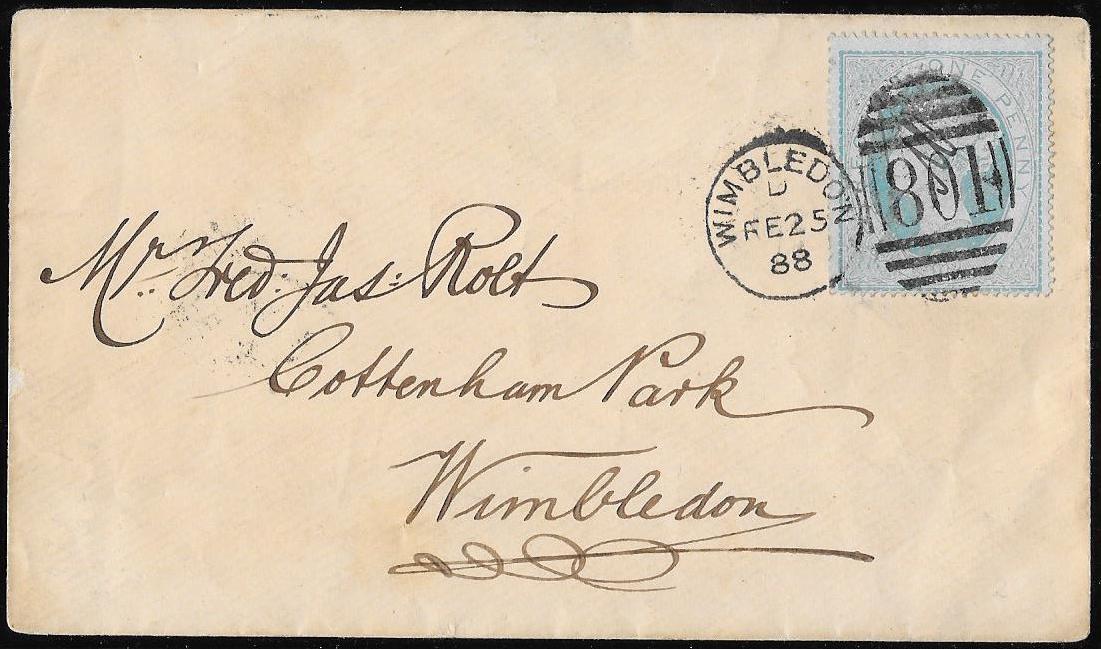 ONE PENNY
WIMBLEDON
D
FE25
88
801
Mr. Fred: Jas: Rolt
Cottenham Park
Wimbledon